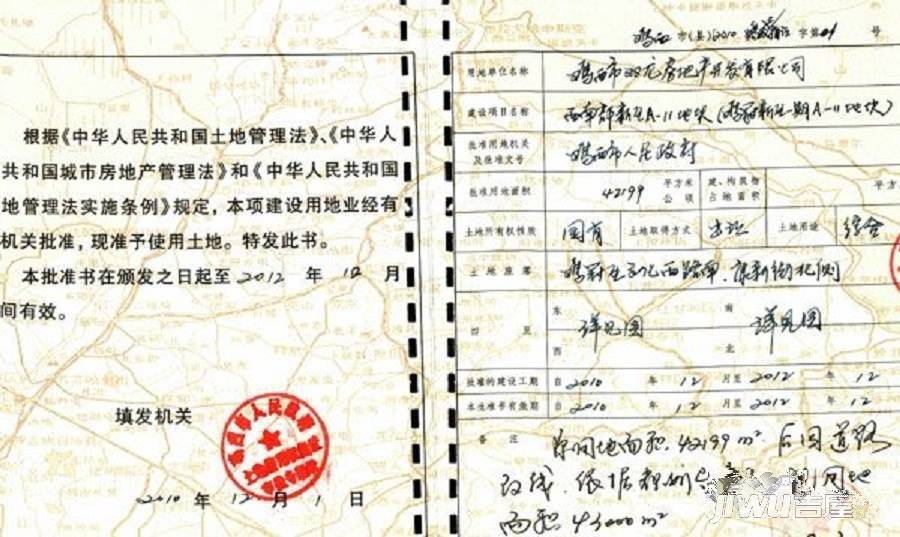 根据《中华人民共和国土地管理法》、《中华人
共和国城市房地产管理法》和《中华人民共和国
地管理法实施条例》规定，本项建设用地业经有
机关批准，现准予使用土地。特发此书。
本批准书在颁发之日起至2012年12月
间有效。
填发机关
2010年12月1日
鸡西市(县)(2010 字第 号
用地单位名称 鸡西市双龙房地产开发有限公司
建设项目名称 西南部新区A-11地块(鸡冠新区一期A-11地块)
批准用地机关及批准文号 鸡西市人民政府
批准用地面积 42199 平方米 公顷 建、构筑物占地面积 平方
土地所有权性质 国有 土地取得方式 出让 土地用途 综合
土地座落 鸡冠区 西路南、康新街北侧
四至 东 详见图 南 详见图
西 北
批准的建设工期 自2010年12月至2012年12
本批准书有效期 自2010年12月至2012年12
备注 原用地面积42199m². 后因道路
改线.依据规划 用地
面积43000m²
jiwu吉屋